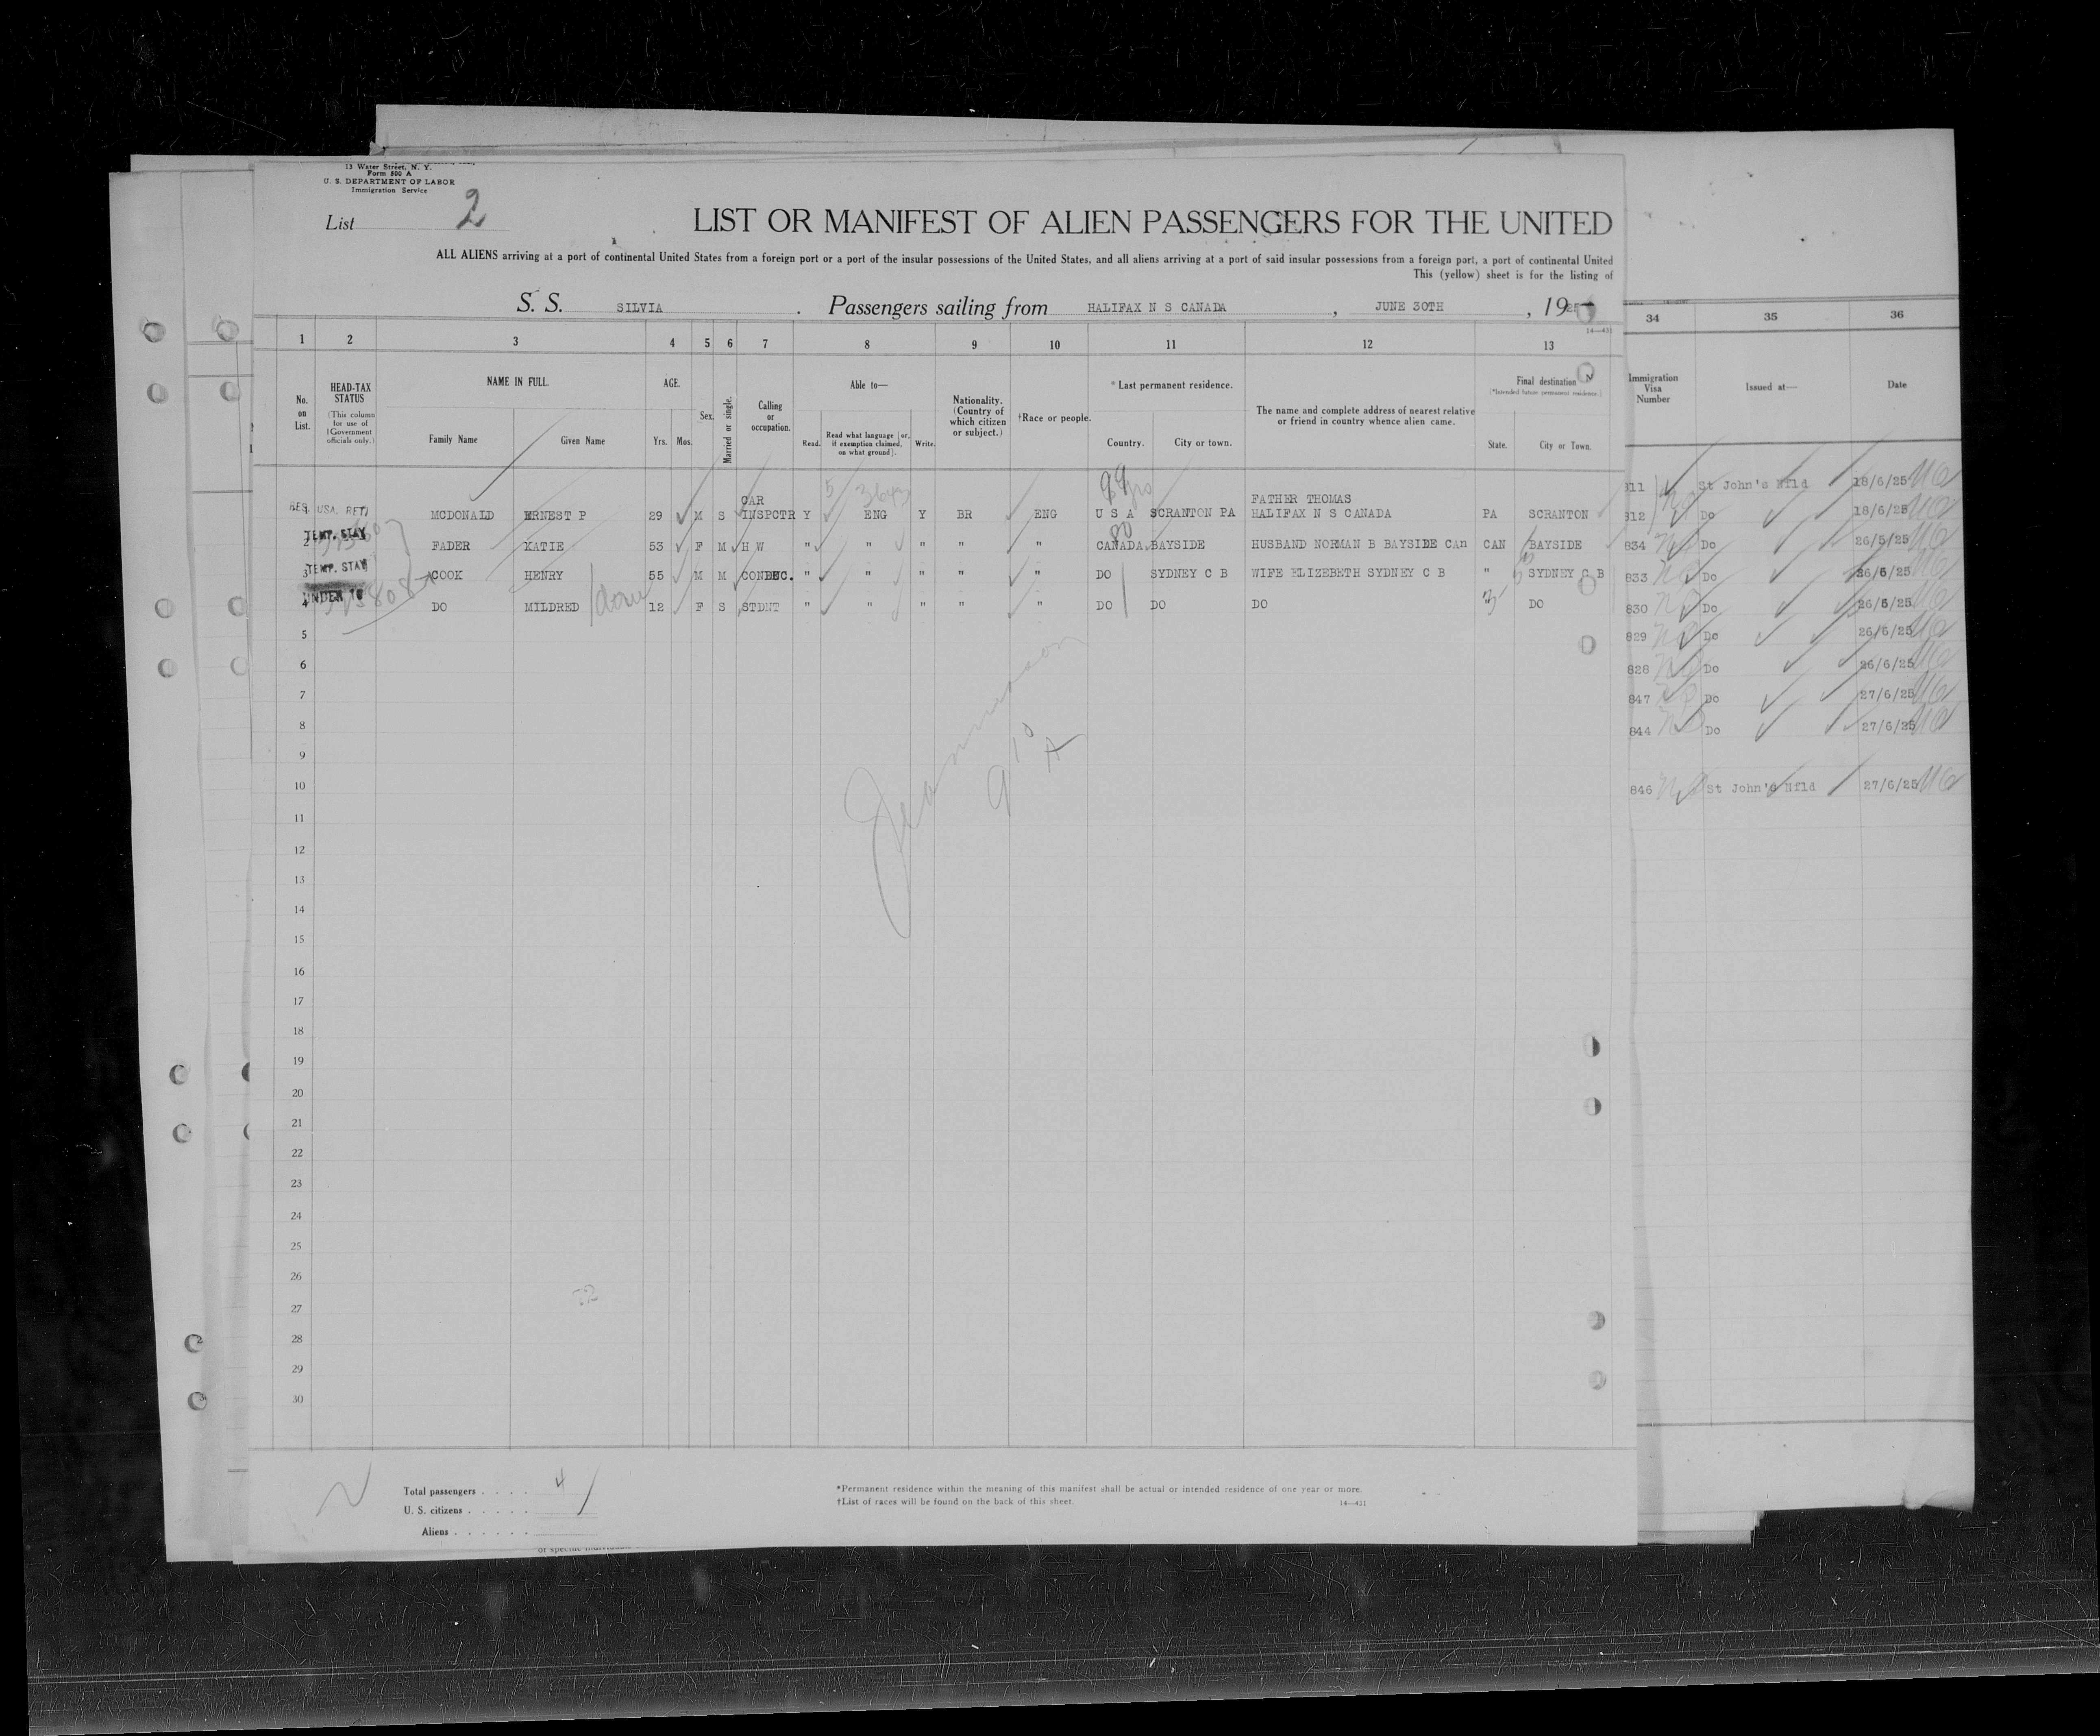 13 Water Street, N. Y.
Form 500 A
U. S. DEPARTMENT OF LABOR
Immigration Service
List 2
LIST OR MANIFEST OF ALIEN PASSENGERS FOR THE UNITED
ALL ALIENS arriving at a port of continental United States from a foreign port or a port of the insular possessions of the United States, and all aliens arriving at a port of said insular possessions from a foreign port, a port of continental United
This (yellow) sheet is for the listing of
S. S. SILVIA . Passengers sailing from HALIFAX N S CANADA , JUNE 30TH , 1925
14—431
1 2 3 4 5 6 7 8 9 10 11 12 13
No. on List.
HEAD-TAX STATUS
(This column for use of Government officials only.)
NAME IN FULL.
Family Name Given Name
AGE.
Yrs. Mos.
Sex.
Married or single.
Calling or occupation.
Able to—
Read. Read what language [or, if exemption claimed, on what ground]. Write.
Nationality. (Country of which citizen or subject.)
†Race or people.
*Last permanent residence.
Country. City or town.
The name and complete address of nearest relative or friend in country whence alien came.
Final destination
(*Intended future permanent residence.)
State. City or Town.
CAR FATHER THOMAS
USA. RET. MCDONALD ERNEST P 29 M S INSPCTR Y ENG Y BR ENG U S A SCRANTON PA HALIFAX N S CANADA PA SCRANTON
2 TEMP. STAY FADER KATIE 53 F M H W " " " " " CANADA BAYSIDE HUSBAND NORMAN B BAYSIDE CAn CAN BAYSIDE
3 TEMP. STAY COOK HENRY 55 M M CONDUC. " " " " " DO SYDNEY C B WIFE ELIZEBETH SYDNEY C B " SYDNEY C B
4 UNDER 16 DO MILDRED down 12 F S STDNT " " " " " DO DO DO " DO
5
6
7
8
9
10
11
12
13
14
15
16
17
18
19
20
21
22
23
24
25
26
27
28
29
30
Total passengers . . . . 4
U. S. citizens . . . . .
Aliens . . . . . .
*Permanent residence within the meaning of this manifest shall be actual or intended residence of one year or more.
†List of races will be found on the back of this sheet.
14—431
34 35 36
Immigration Visa Number
Issued at—
Date
811 St John's Nfld 18/6/25
812 Do 18/6/25
834 Do 26/6/25
833 Do 26/6/25
830 Do 26/6/25
829 Do 26/6/25
828 Do 26/6/25
847 Do 27/6/25
844 Do 27/6/25
846 St John's Nfld 27/6/25